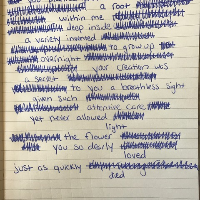 a root
within me
deep inside
a variety invented
to grow up
overnight your creators was
a secret
to you a breathless sight
given such
attentive care
yet never allowed
light
the flower
you so dearly
loved
just as quickly
died